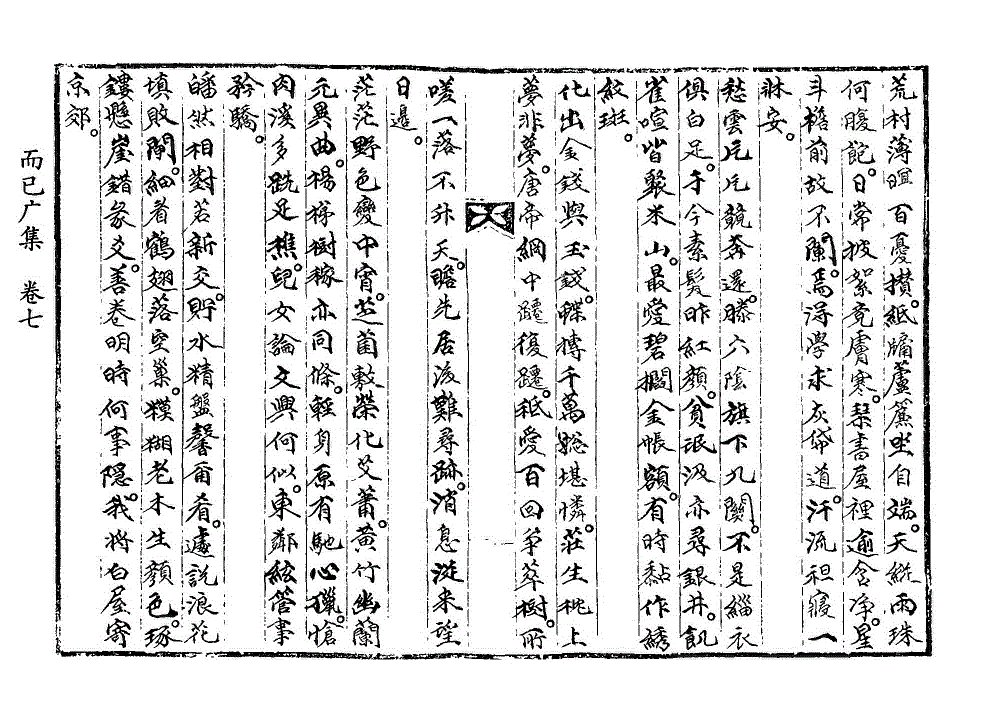 荒村薄暄百憂攢。紙牖蘆簾坐自端。天統雨珠
何腹飽。日常披絮竟膚寒。琴書屋裡逾含净。星
斗檐前故不闌。焉得學求灰袋道。汗流袒寢一
牀安。
愁雲片片競奔還。滕六陰旗下九關。不是緇衣
俱白足。于今素髮昨紅顏。貧氓汲亦尋銀井。飢
雀喧皆聚米山。最愛碧櫊金帳額。有時黏作綉
紋斑。
化出金錢與玉錢。蝶摶千萬總堪憐。莊生枕上
夢非夢。唐帝網中躚復躚。秖愛百回爭萃樹。所
嗟一落不升天。瞻先居後難尋跡。消息漇来望
日邊。
茫茫野色變中宵。芝菌敷榮化艾蕭。黃竹幽蘭
元異曲。楊梯樹稼亦同條。輕身原有馳心獵。愴
肉溪多跣足樵。兒女論文興何似。東鄰絃管事
矜驕。
皤然相對若新交。貯水精盤馨爾肴。遽說浪花
填敗閘。細看鶴翅落空巢。模糊老木生顏色。琢
鏤懸崖錯彖爻。善卷明時何事隱。我將白屋寄
京郊。
而已广集 卷七